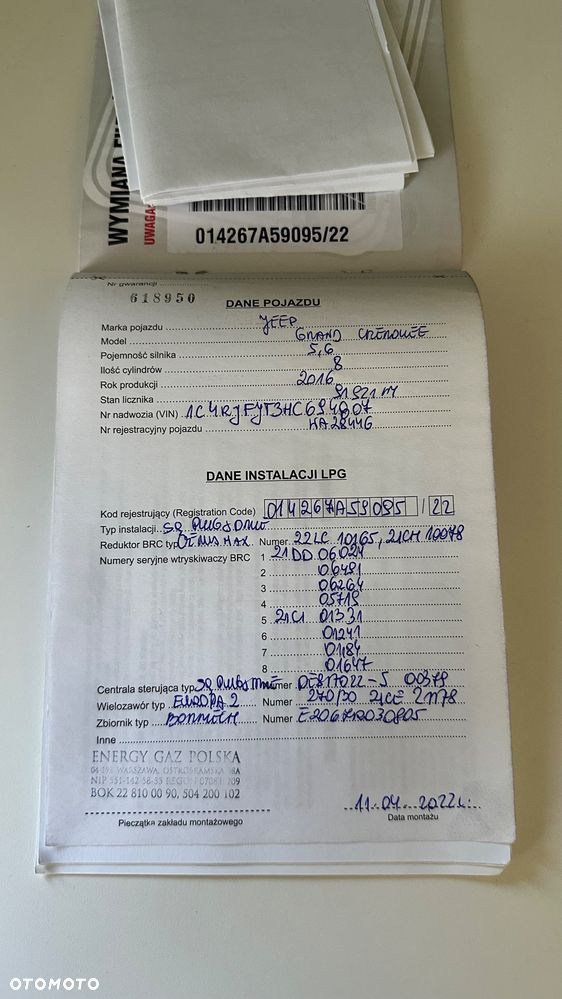 WYMIANA
UWAGA
014267A59095/22
Nr gwarancji
618950
DANE POJAZDU
Marka pojazdu JEEP
Model GRAND CHEROKEE
Pojemność silnika 5,6
Ilość cylindrów 8
Rok produkcji 2016
Stan licznika 81821
Nr nadwozia (VIN) 1C4RJFYT3HC694807
Nr rejestracyjny pojazdu
DANE INSTALACJI LPG
Kod rejestrujący (Registration Code) 014267A59095/22
Typ instalacji SQ
Reduktor BRC typ MAX Numer 22LC 10165, 21CH 10078
Numery seryjne wtryskiwaczy BRC 1 21DD 06024
2 06481
3 06264
4 05719
5 21CI 01331
6 01241
7 01184
8 01647
Centrala sterująca typ SQ Numer DE817022-5 00379
Wielozawór typ EUROPA 2 Numer 270/30 21CE 21178
Zbiornik typ Numer
Inne
ENERGY GAZ POLSKA
04-193 WARSZAWA, OSTROBRAMSKA
NIP 951-142-58-53 REGON
BOK 22 810 00 90, 504 200 102
11.04.2022r.
Pieczątka zakładu montażowego
Data montażu
OTOMOTO